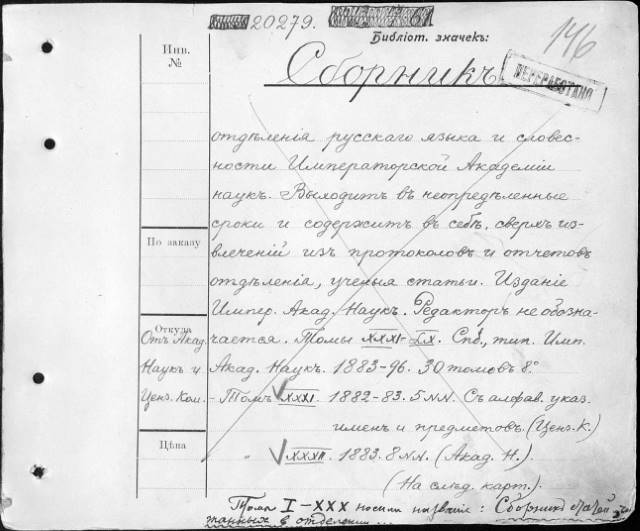 20279.
Библіот. значекъ:
146
Инв.
№
Сборникъ
ПЕРЕРАБОТАНО
отдѣленія русскаго языка и словес-
ности Императорской Академіи
наукъ. Выходитъ въ неопредѣленные
сроки и содержитъ въ себѣ, сверхъ из-
По заказу
влеченій изъ протоколовъ и отчетовъ
отдѣленія, ученыя статьи. Изданіе
Импер. Акад. Наукъ. Редакторъ не обозна-
Откуда
чается. Томы XXXI-LX. Спб., тип. Имп.
Отъ Акад.
Наукъ и
Акад. Наукъ. 1883-96. 30 томовъ 8°
Ценз. Ком.
- Томъ XXXI. 1882-83. 5 NN. Съ алфав. указ.
именъ и предметовъ. (Ценз. К.)
Цѣна
XXXII. 1883. 8 NN. (Акад. Н.).
(На слѣд. карт.).
Тома I-XXX носили названіе: Сборникъ статей, чи-
танныхъ въ отделении